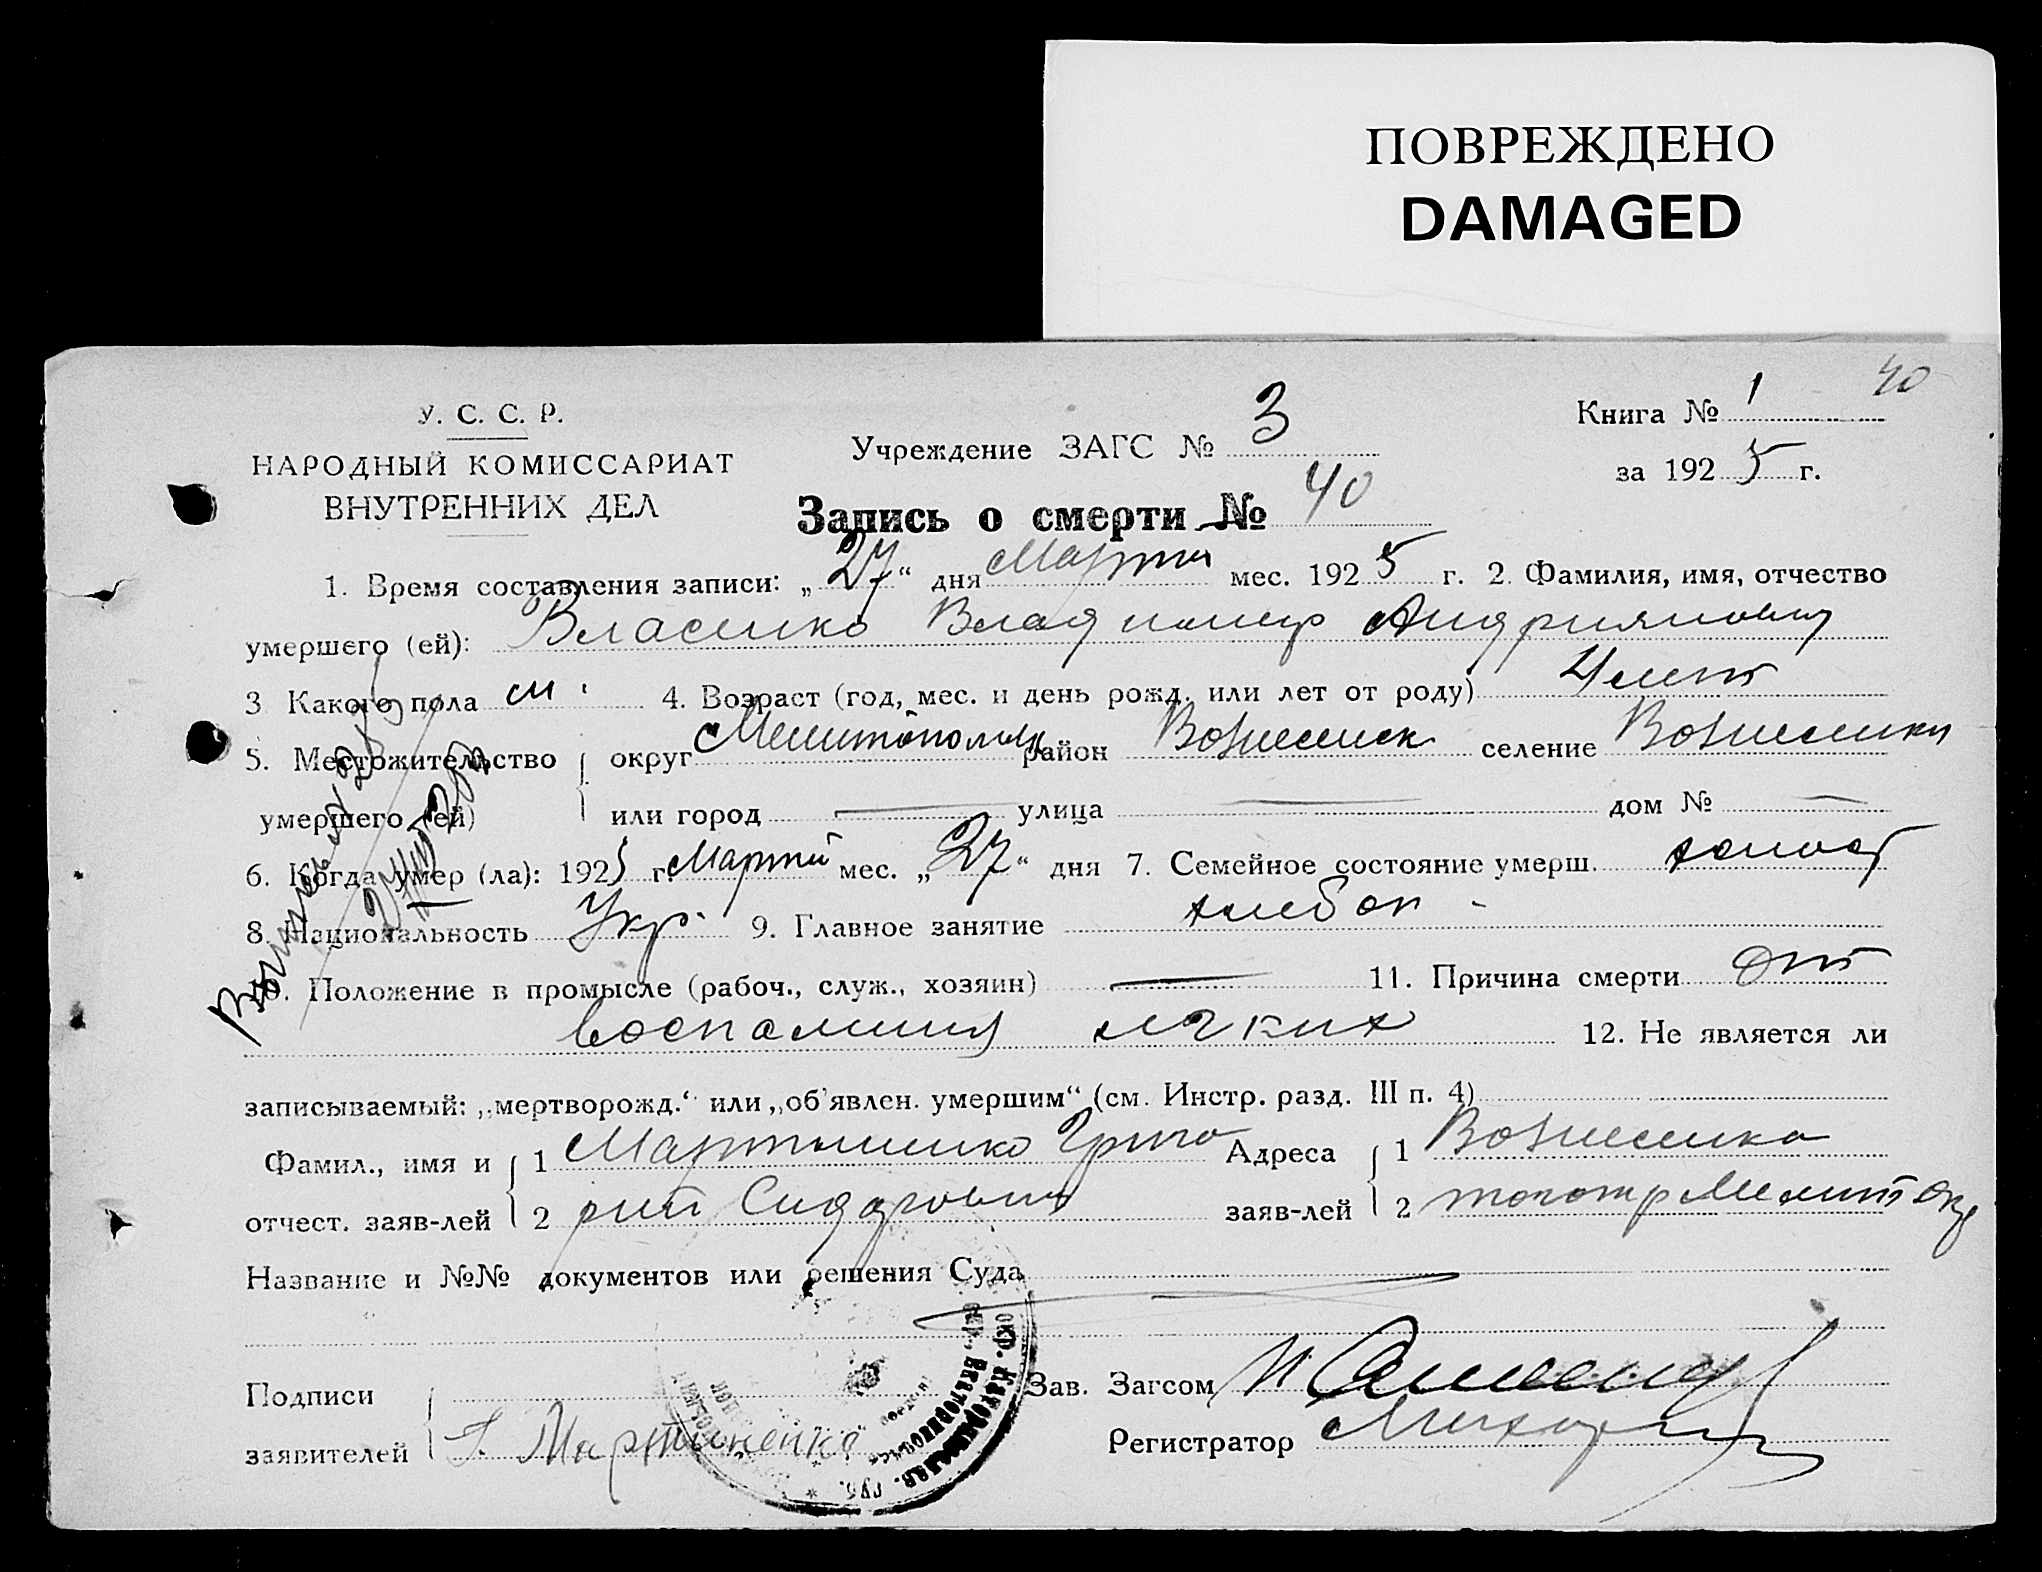 ПОВРЕЖДЕНО
DAMAGED
40
У. С. С. Р.
НАРОДНЫЙ КОМИССАРИАТ
ВНУТРЕННИХ ДЕЛ
Учреждение ЗАГС № 3
Книга № 1
за 1925 г.
Запись о смерти № 40
1. Время составления записи: „27“ дня Марта мес. 1925 г. 2. Фамилия, имя, отчество
умершего (ей): Власенко Владимир Андриянович
3 Какого пола м. 4. Возраст (год, мес. и день рожд. или лет от роду) 4 лет
5. Местожительство округ Мелитополь район Вознесенск селение Вознесенки
умершего (ей) или город — улица — дом № —
6. Когда умер (ла): 1925 г. Марта мес. „27“ дня 7. Семейное состояние умерш. холост
8. Национальность Укр. 9. Главное занятие хлебоп -
10. Положение в промысле (рабоч., служ., хозяин) — 11. Причина смерти От
воспаления легких 12. Не является ли
записываемый: „мертворожд.“ или „об'явлен. умершим“ (см. Инстр. разд. III п. 4)
Фамил., имя и 1 Мартыненко Григо Адреса 1 Вознесенка
отчест. заяв-лей 2 рий Сидорович заяв-лей 2 тогожр Мелит Окр
Название и №№ документов или решения Суда
Подписи Зав. Загсом
заявителей Г. Мартыненко Регистратор